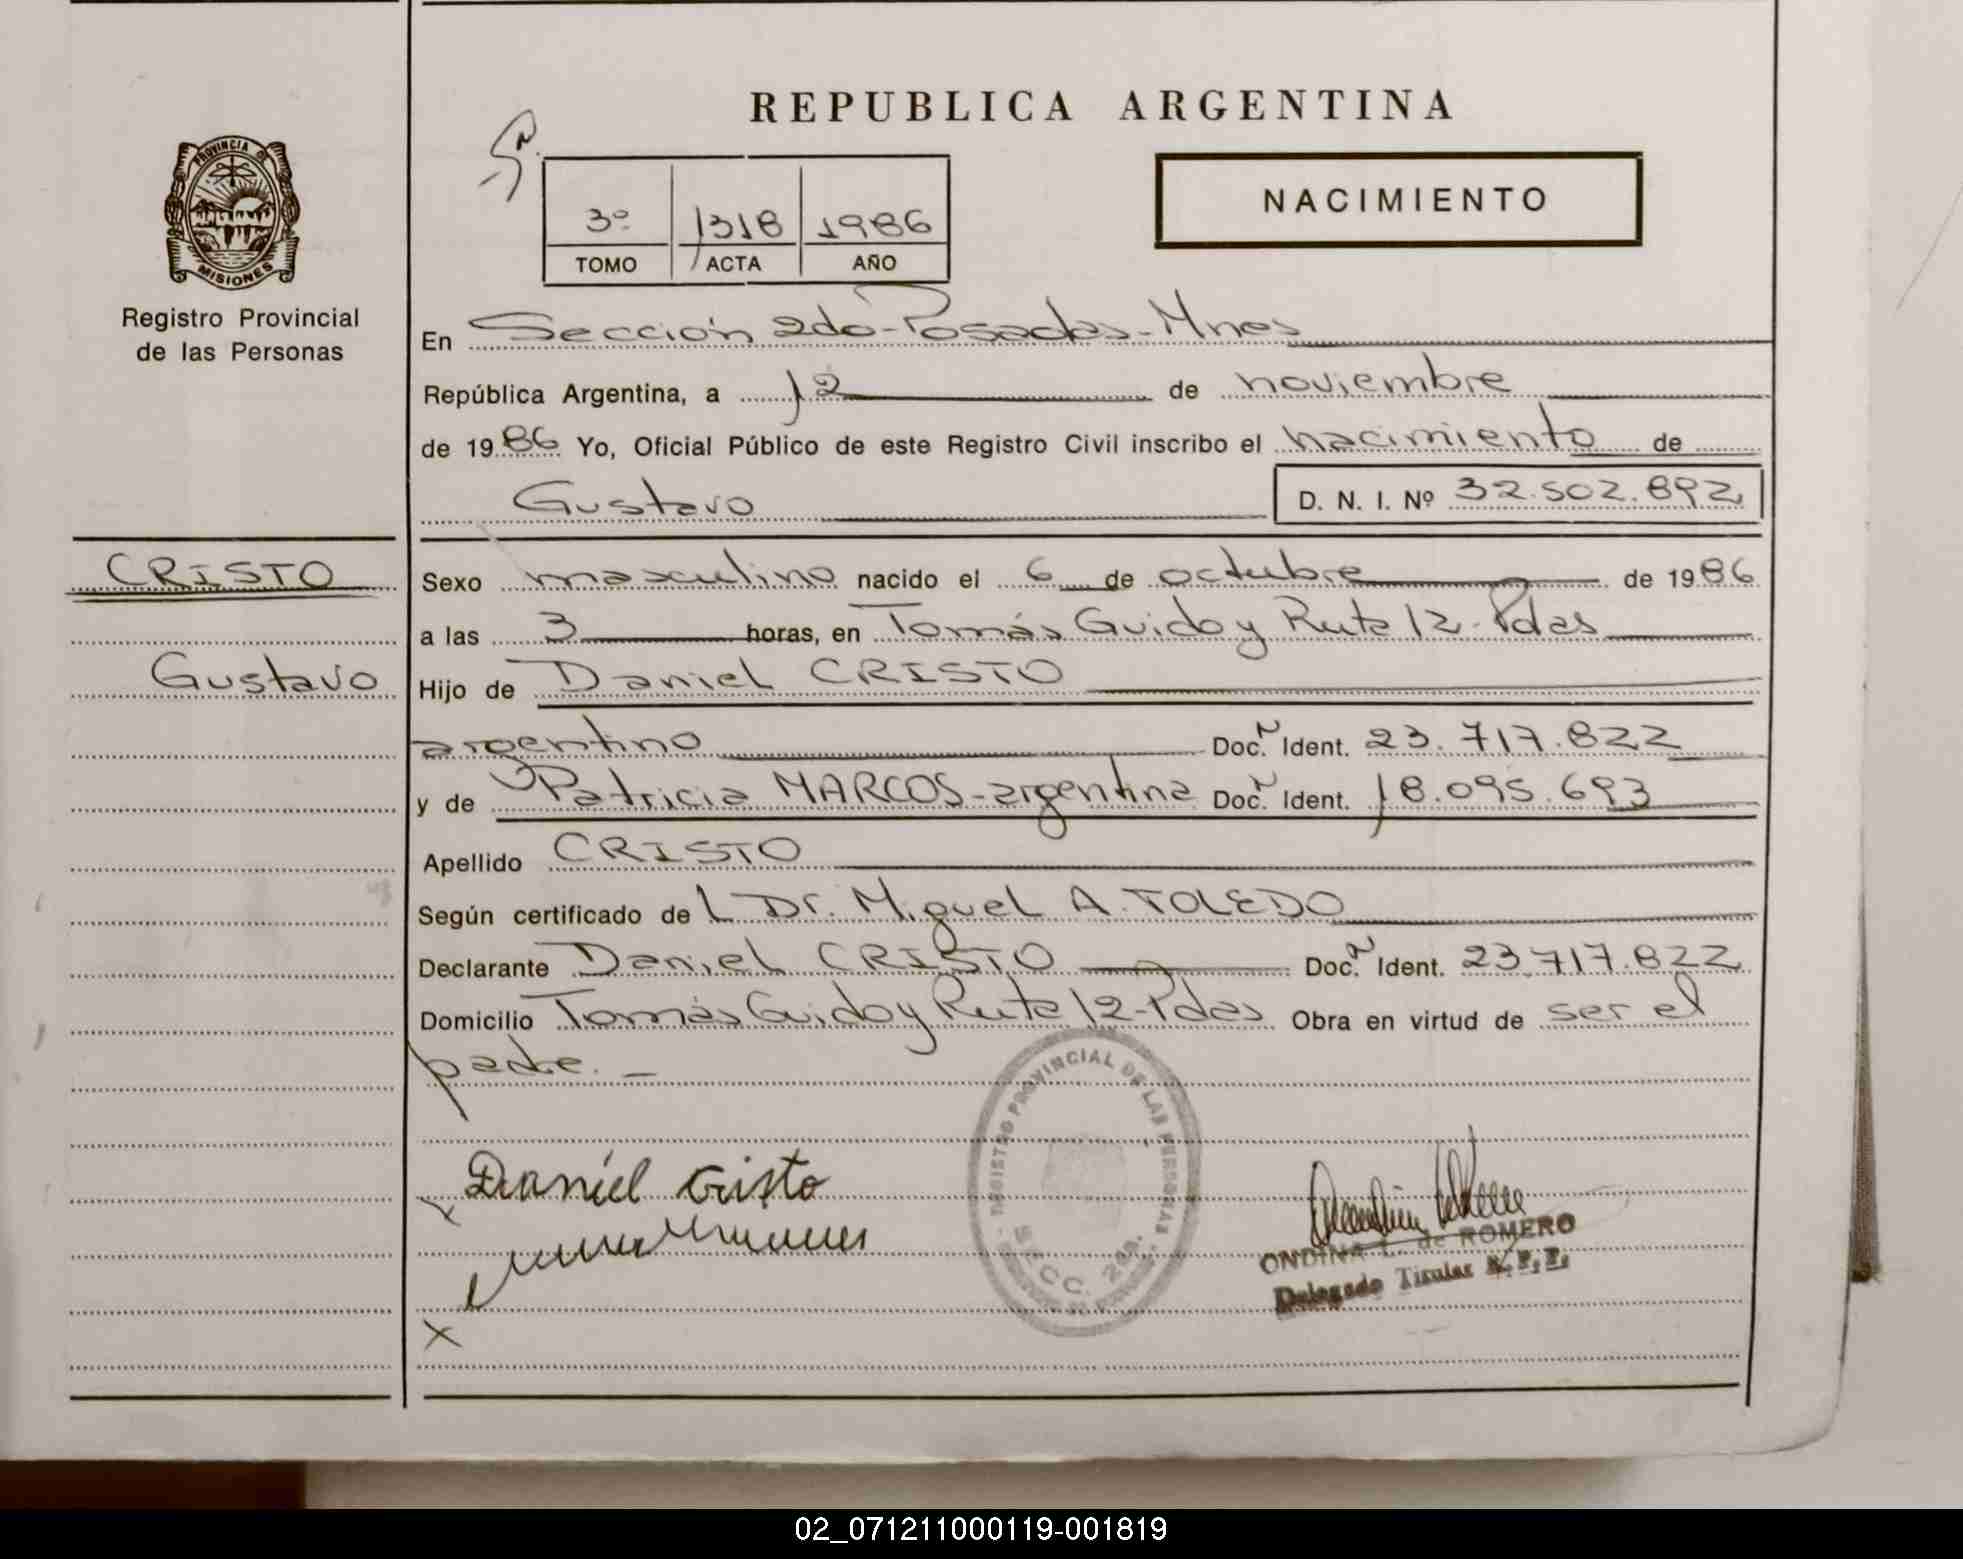 REPUBLICA ARGENTINA
PROVINCIA DE
MISIONES
Registro Provincial
de las Personas
3º 1318 1986
TOMO ACTA AÑO
NACIMIENTO
En Sección 2da-Posadas-Mnes
República Argentina, a 12 de noviembre
de 1986 Yo, Oficial Público de este Registro Civil inscribo el nacimiento de
Gustavo D. N. I. Nº 32.502.892
CRISTO
Gustavo
Sexo masculino nacido el 6 de octubre de 1986
a las 3 horas, en Tomás Guido y Ruta 12-Pdas
Hijo de Daniel CRISTO
argentino Doc. Ident. 23.717.822
y de Patricia MARCOS-argentina Doc. Ident. 18.095.693
Apellido CRISTO
Según certificado del Dr. Miguel A. TOLEDO
Declarante Daniel CRISTO Doc. Ident. 23.717.822
Domicilio Tomás Guido y Ruta 12-Pdas Obra en virtud de ser el
padre.-
REGISTRO PROVINCIAL DE LAS PERSONAS
SECC. 2da.
Daniel Cristo
ONDINA L. de ROMERO
Delegado Titular R.P.P.
02_071211000119-001819